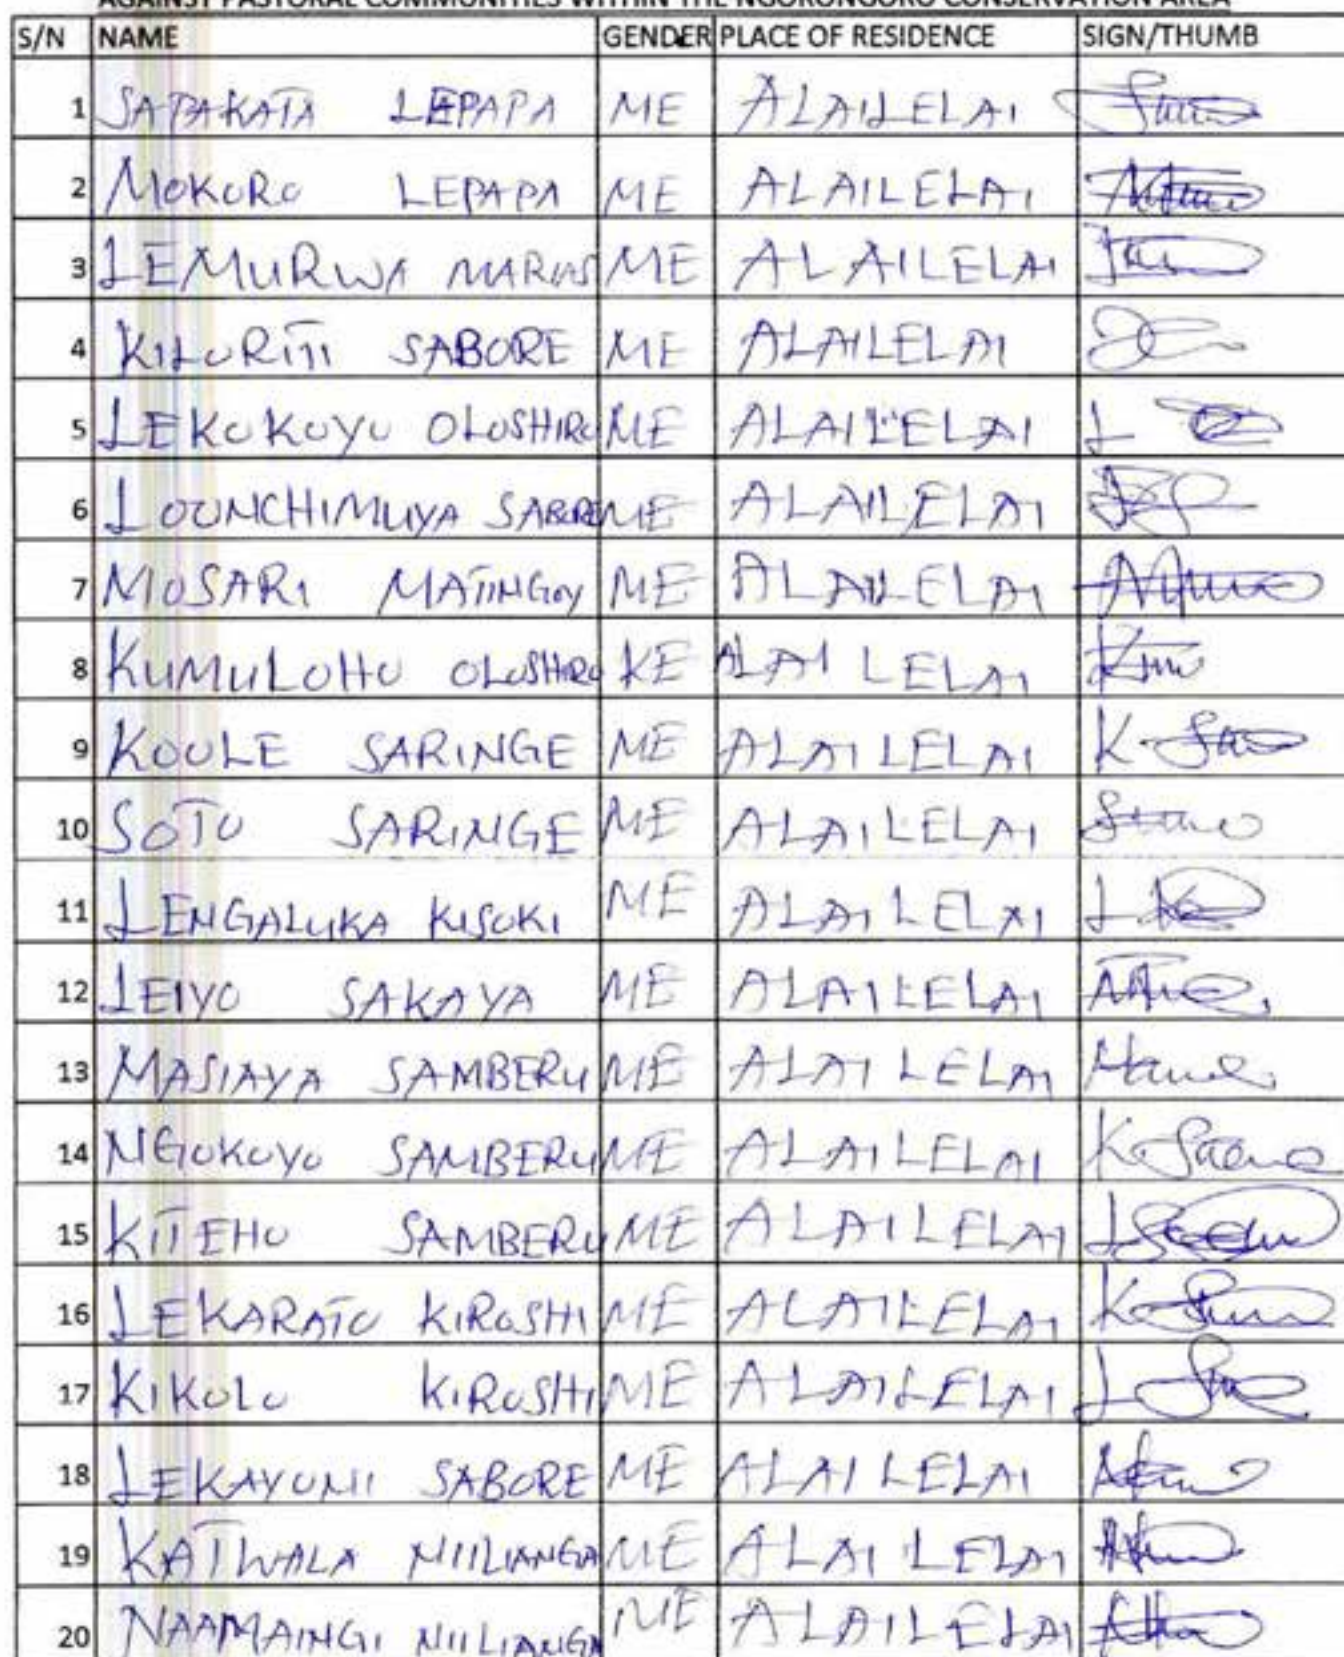 AGAINST PASTORAL COMMUNITIES WITHIN THE NGORONGORO CONSERVATION AREA
S/N NAME GENDER PLACE OF RESIDENCE SIGN/THUMB
1 SAPAKATA LEPAPA ME ALAILELAI
2 MOKORO LEPAPA ME ALAILELAI
3 LEMURWA MARIAS ME ALAILELAI
4 KILORITI SABORE ME ALAILELAI
5 LEKOKOYO OLOSHIRO ME ALAILELAI
6 LOONCHIMUYA SABORE ME ALAILELAI
7 MOSARI MATINGOY ME ALAILELAI
8 KUMULOHO OLOSHIRO KE ALAILELAI
9 KOOLE SARINGE ME ALAILELAI
10 SOTO SARINGE ME ALAILELAI
11 LENGALUKA KISOKI ME ALAILELAI
12 LEIYO SAKAYA ME ALAILELAI
13 MASIAYA SAMBERU ME ALAILELAI
14 NGOKOYO SAMBERU ME ALAILELAI
15 KITEHO SAMBERU ME ALAILELAI
16 LEKARATO KIROSHI ME ALAILELAI
17 KIKOLO KIROSHI ME ALAILELAI
18 LEKAYONI SABORE ME ALAILELAI
19 KATWALA NIILIANGA ME ALAILELAI
20 NAAMAINGI NIILIANGA ME ALAILELAI